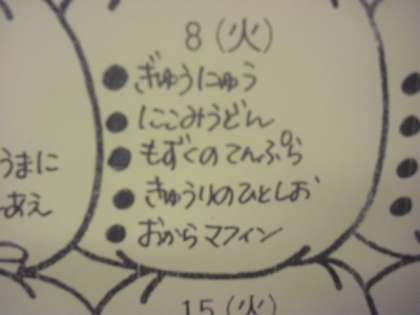 8 (火)
ぎゅうにゅう
にこみうどん
もずくのてんぷら
きゅうりのひとしお
おからマフィン
うまに
あえ
15 (火)